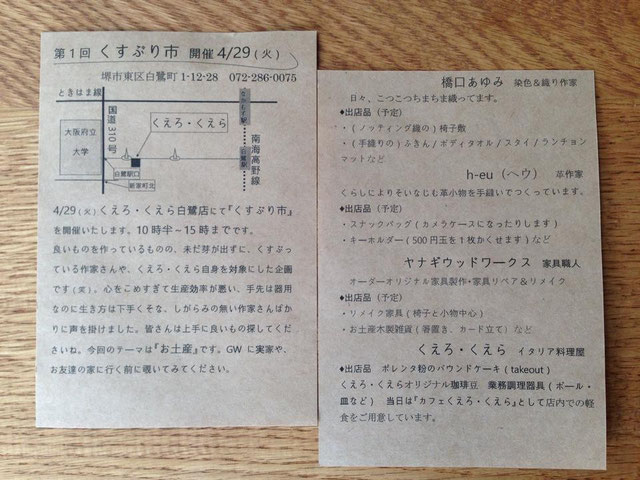 第1回 くすぶり市 開催 4/29(火)
堺市東区白鷺町1-12-28 072-286-0075
ときはま線
国道310号
くえろ・くえら
大阪府立
大学
白鷺駅口
新家町北
なかもず駅
白鷺駅
南海高野線
4/29(火)くえろ・くえら白鷺店にて『くすぶり市』
を開催いたします。10時半~15時までです。
良いものを作っているものの、未だ芽が出ずに、くすぶっ
ている作家さんや、くえろ・くえら自身を対象にした企画
です(笑)。心をこめすぎて生産効率が悪い、手先は器用
なのに生き方は下手くそな、しがらみの無い作家さんばか
りに声を掛けました。皆さんは上手に良いもの探してくだ
さいね。今回のテーマは『お土産』です。GWに実家や、
お友達の家に行く前に覗いてみてください。
橋口あゆみ 染色&織り作家
日々、こつこつちまちま織ってます。
♦出店品(予定)
・(ノッティング織の)椅子敷
・(手織りの)ふきん/ボディタオル/スタイ/ランチョン
マットなど
h-eu(ヘウ) 革作家
くらしによりそいなじむ革小物を手縫いでつくっています。
♦出店品(予定)
・スナックバッグ(カメラケースになったりします)
・キーホルダー(500円玉を1枚かくせます)など
ヤナギウッドワークス 家具職人
オーダーオリジナル家具製作・家具リペア&リメイク
♦出店品(予定)
・リメイク家具(椅子と小物中心)
・お土産木製雑貨(箸置き、カード立て)など
くえろ・くえら イタリア料理屋
♦出店品 ポレンタ粉のパウンドケーキ(takeout)
くえろ・くえらオリジナル珈琲豆 業務調理器具(ボール・
皿など) 当日は『カフェくえろ・くえら』として店内での軽
食をご用意しています。